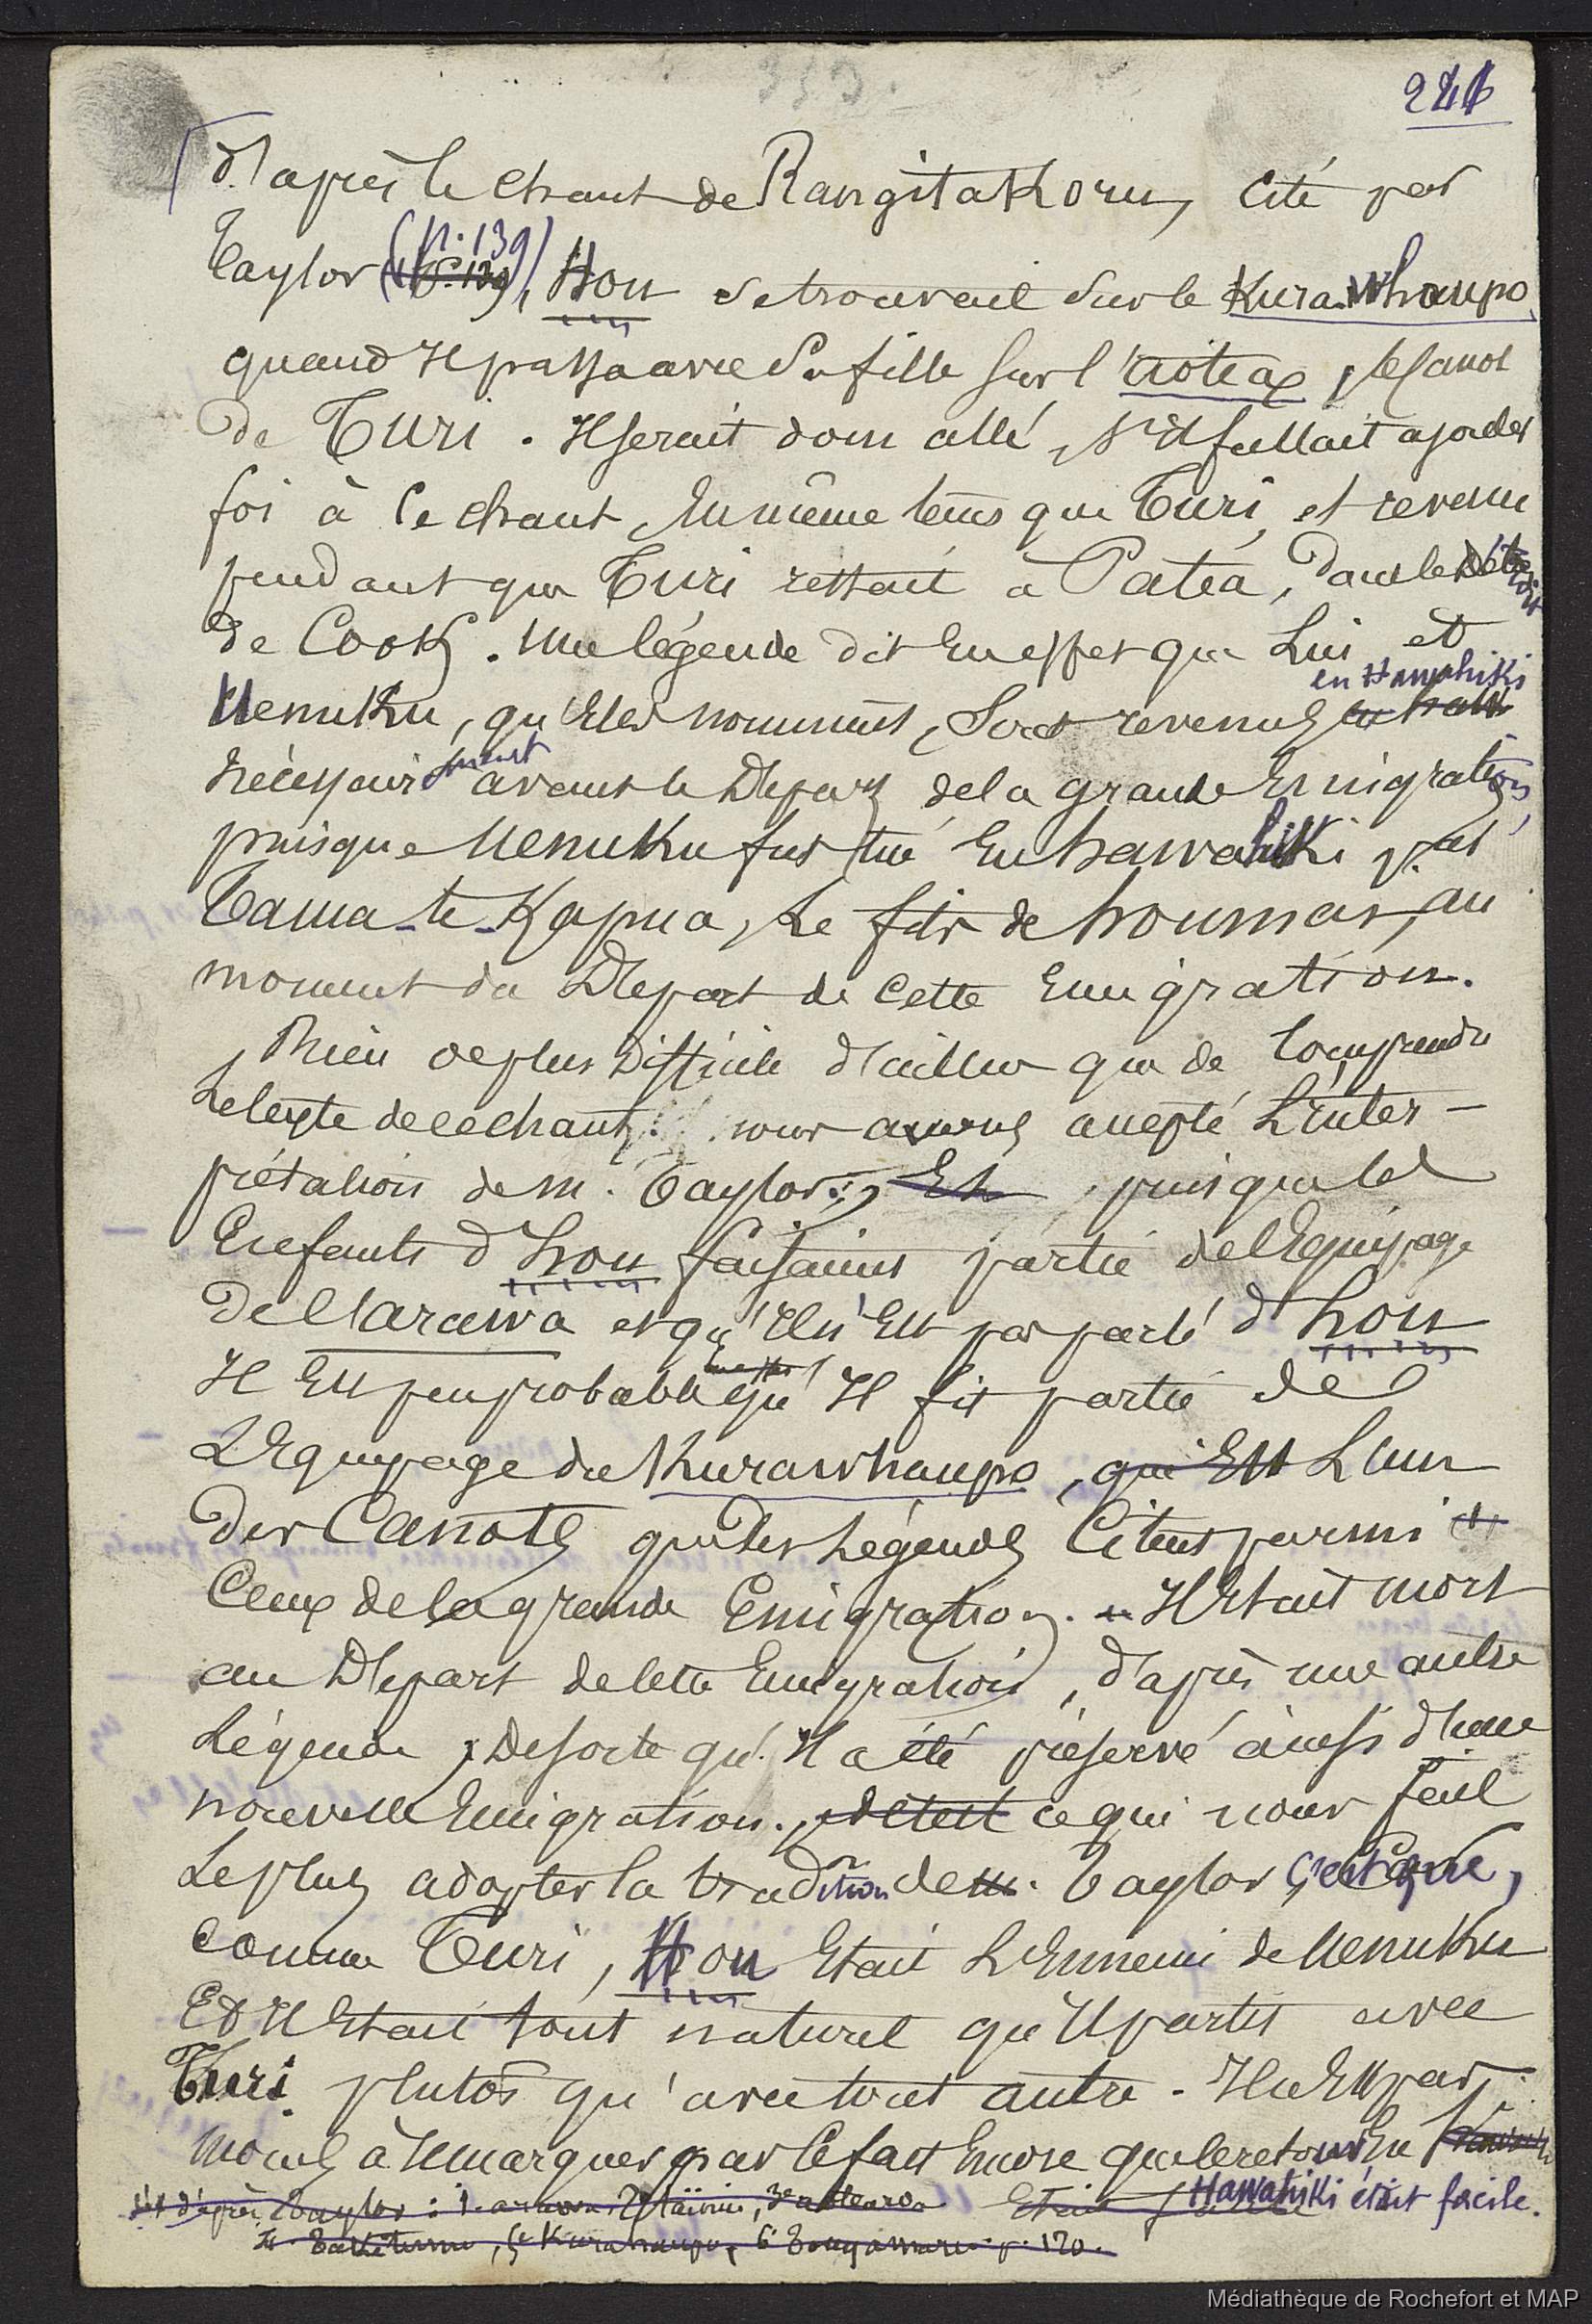 D'après le chant de Rangitakoru, cité par
Taylor (p. 139), Hou se trouvait sur le Kurawhaupo
quand Il passa avec sa fille sur l'aotea, le canot
de Turi. Il serait donc allé, s'il fallait ajouter
foi à ce chant, En même tems que Turi, et revenu
pendant que Turi restait à Patea, dans le détroit
de Cook. Une légende dit En effet que Lui et
Uenuku, qu'Elle nomment, sont revenus en Hawahiki
nécessairement avant le Départ de la grande Emigration,
puisque Uenuku fut tué En hawahiki par
Tama-te-Kapua, Le fils de houmai, au
moment du Départ de cette Emigration.
Rien de plus difficile d'ailleurs que de comprendre
Le texte de ce chant: nous avons accepté L'inter-
prétation de M. Taylor; Et puisque les
Enfants d'hou faisaient partie de l'Equipage
De l'arawa et qu'Il n'Est pas parlé d'hou
Il Est peu probable qu'Il fit partie de
L'Equipage du Kurawhaupo, qui Est L'un
Des Canots que Les Légendes Citent parmi
Ceux de la grande Emigration. Il Etait mort
au Départ de cette Emigration, d'après une autre
Légende, De sorte qu'Il a été préservé ainsi d'une
nouvelle Emigration. ce qui nous fait
Le plus adopter la tradition de M. Taylor, c'est que,
comme Turi, Hou Etait L'Ennemi de Uenuku
Et Il Etait tout naturel qu'Il partit avec
Turi plutôt qu'avec tout autre. Il n'Est pas
moins à remarquer par ce fait Encore que le retour En
Hawahiki était facile.
d'après Taylor : 1. arawa 2. taïnui, 3e aotearoa
4. Takitumu, 5e Kurahaupo, 6 Tongamaru p. 120.
Médiathèque de Rochefort et MAP